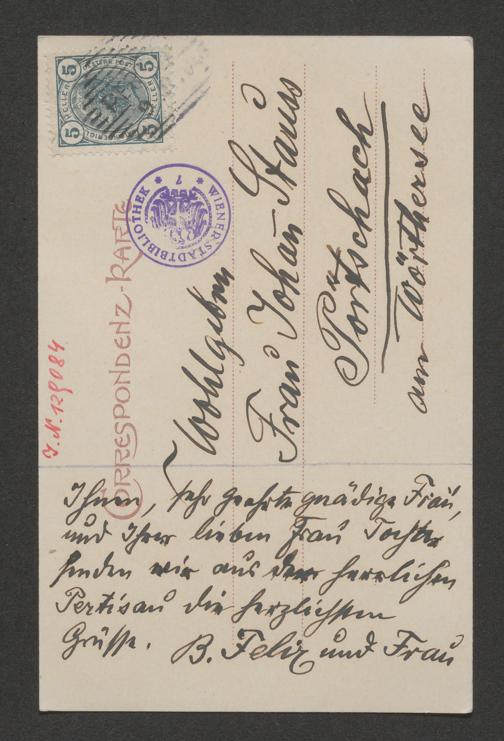 5 5
HELLER HELLER
5 5
WIENER STADTBIBLIOTHEK
* 7 *
CORRESPONDENZ-KARTE
J.N. 129084
Wohlgeboren
Frau Johan̄ Strauss
Pörtschach
am Wörthersee
Ihnen, sehr geehrte gnädige Frau,
und Ihrer lieben Frau Tochter
senden wir aus dem herrlichen
Pertisau die herzlichsten
Grüsse. B. Feliz und Frau